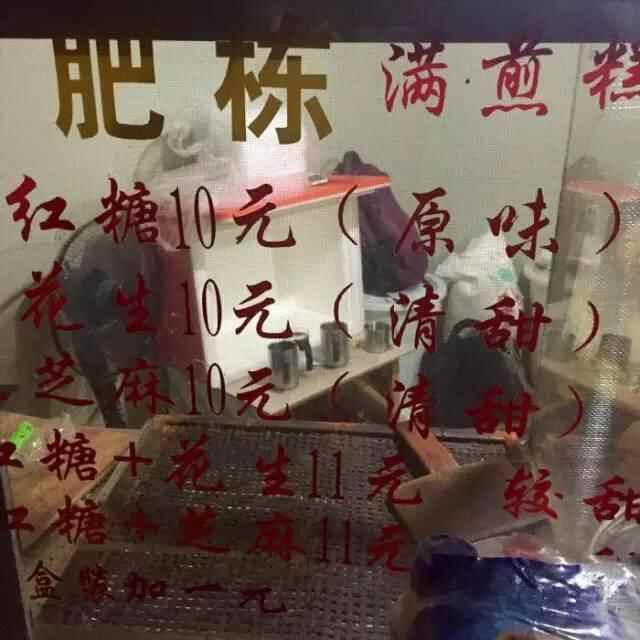 肥栋 满·煎糕
红糖10元(原味)
花生10元(清甜)
芝麻10元(清甜)
红糖+花生11元 较甜
红糖+芝麻11元
盒装加一元